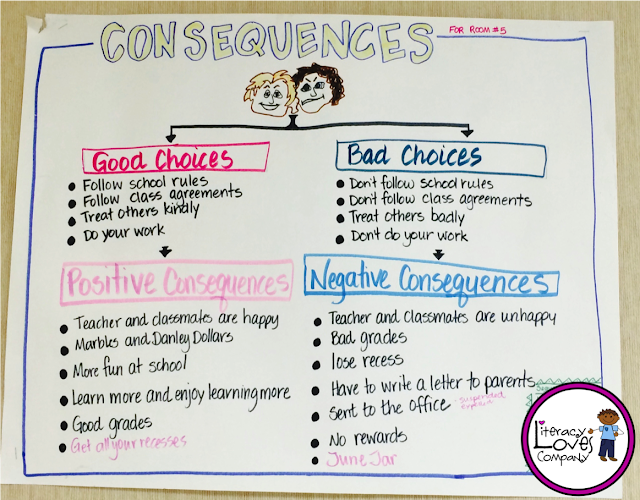 CONSEQUENCES
FOR ROOM #5
Good Choices
• Follow school rules
• Follow class agreements
• Treat others kindly
• Do your work
Bad Choices
• Don't follow school rules
• Don't follow class agreements
• Treat others badly
• Don't do your work
Positive Consequences
• Teacher and classmates are happy
• Marbles and Danley Dollars
• More fun at school
• Learn more and enjoy learning more
• Good grades
• Get all your recesses
Negative Consequences
• Teacher and classmates are unhappy
• Bad grades
• lose recess
• Have to write a letter to parents
• Sent to the office · suspended
• No rewards
• June Jar
Literacy
Loves
Company